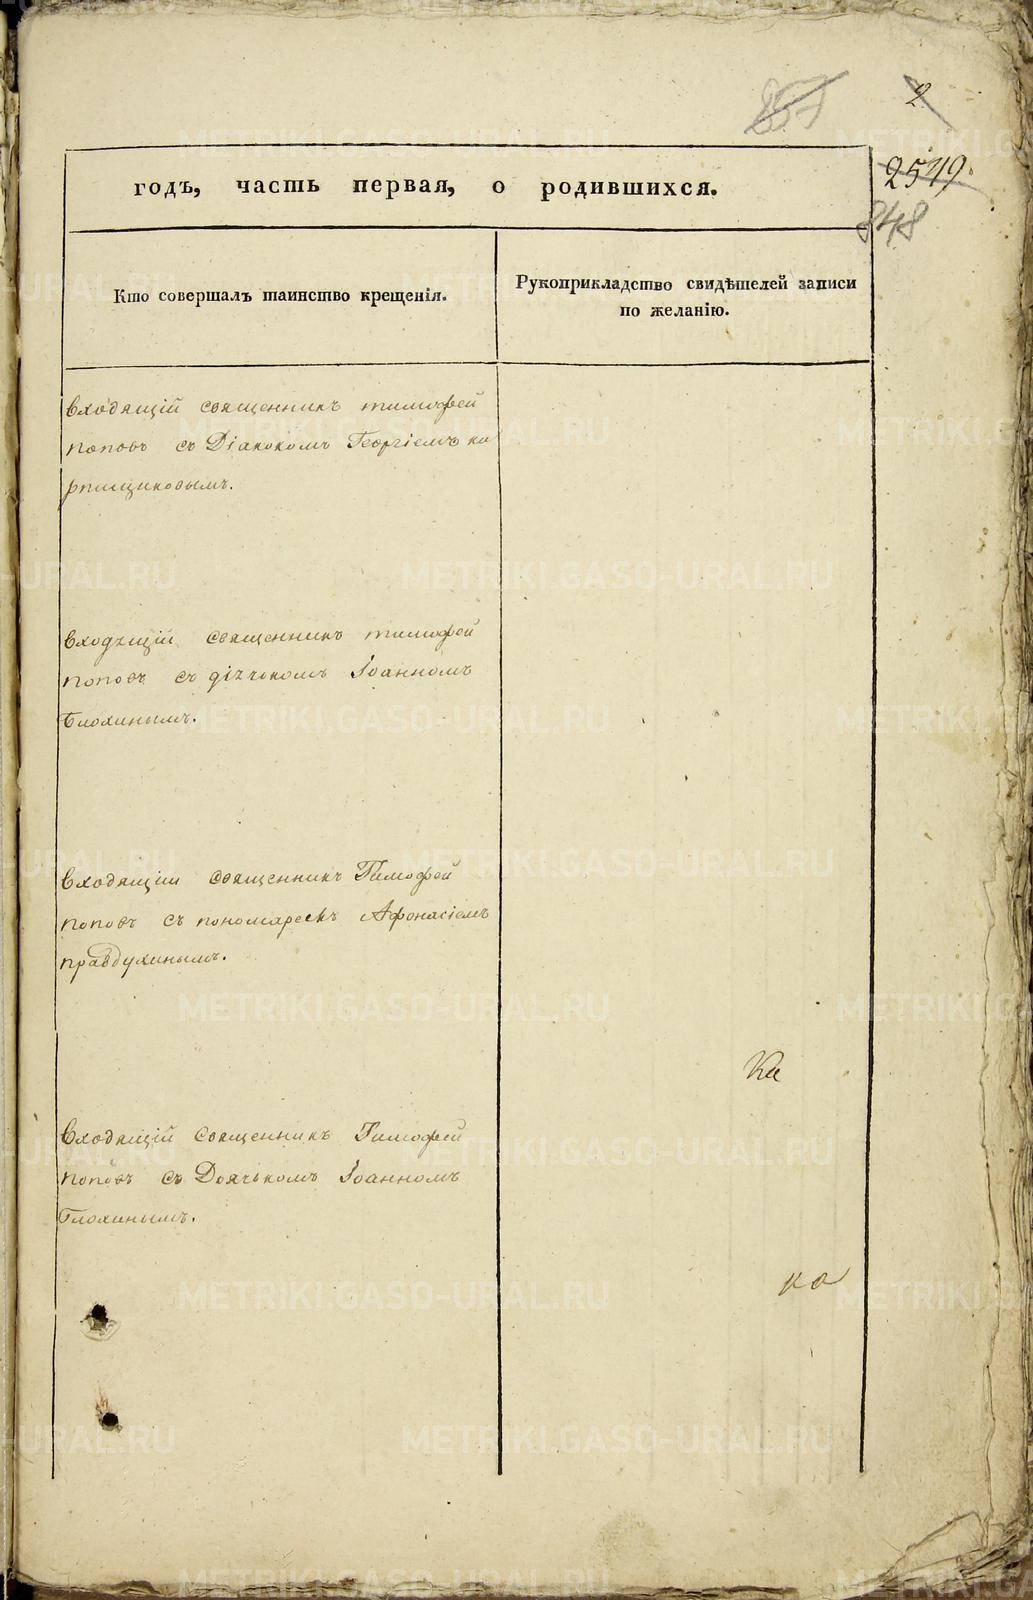 857
2
2549.
848
годъ, часть первая, о родившихся.
Кто совершалъ таинство крещенія.
Рукоприкладство свидѣтелей записи
по желанію.
входящій священникъ тимофей
поповъ съ Діакокомъ Георгіемъ ка
рпищиковымъ.
входящій священникъ тимофей
поповъ съ дьячкомъ Іоанномъ
Блохинымъ.
входящіи священникъ Тимофей
поповъ съ пономаремъ Афонасіемъ
правдухинымъ.
Ка
входящій священникъ Тимофей
поповъ съ Дьячькомъ Іоанномъ
Блохинымъ.
ка
METRIKI.GASO-URAL.RU